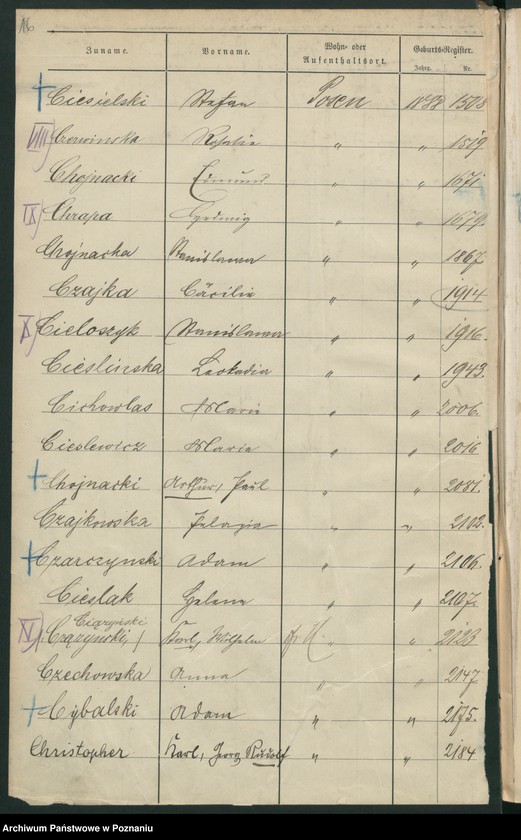 Zuname. Vorname. Wohn- oder Aufenthaltsort. Geburts-Register.
Jahrg. Nr.
Ciesielski Stefan Posen 1508
VIII Rosalie " " 1519
Chojnacki Edmund " " 1671.
IX Chrapa Hedwig " " 1679.
Chojnacka Stanislawa " " 1867.
Czajka Cäcilie " " 1914
X Cieloszyk Stanislawa " " 1916.
Cieslinska Leokadia " " 1943.
Cichowlas Marie " " 2006.
Cieslewicz Marie " " 2016
Chojnacki Arthur, Paul " " 2081.
Czajkowska Pelagia " " 2102.
Czarczynski Adam " " 2106.
Cieslak Helena " " 2107.
Ciązyński
XI Czązynski Karl, Wilhelm " " 2123
Czechowska Anna " " 2147
Cybalski Adam " " 2175.
Christopher Karl, Georg Rudolf " " 2184
Archiwum Państwowe w Poznaniu